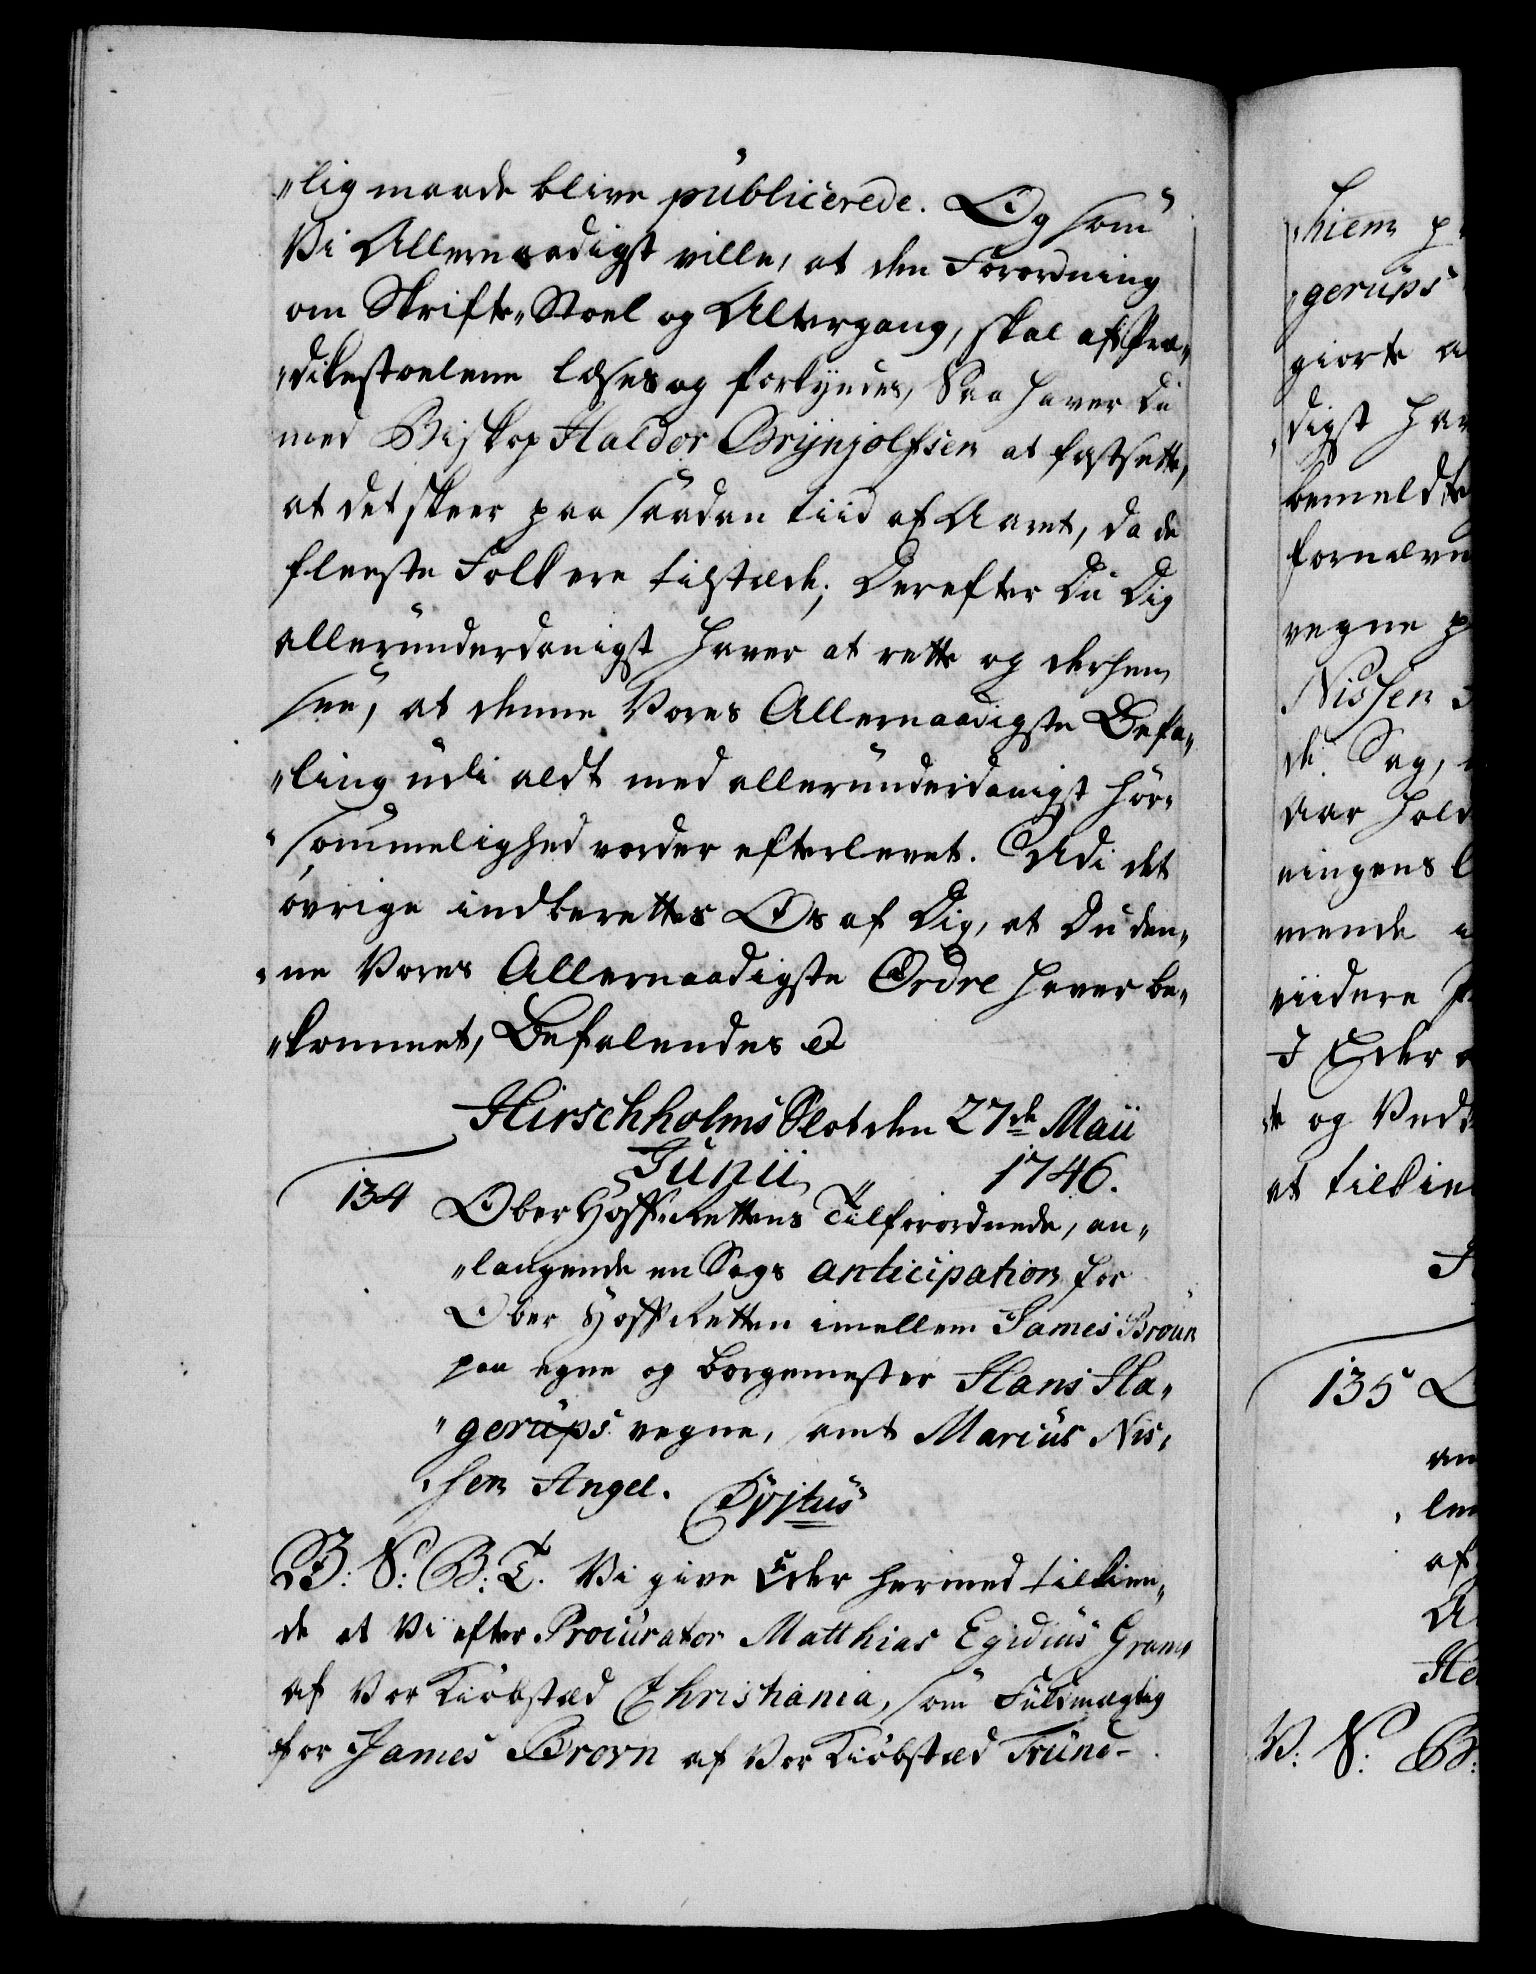 "lig maade blive publicerede. Og som
Vi Allernaadigst ville, at den Forordning
om Skrifte-Stoel og Altergang, skal af Præ"
"dikestoelene læses og forkyndes, Saa haver Du
med Biskop Haldor Brynjolfsen at fastsette,
at det skeer paa saadan tiid af Aaret, da de
fleeste Folk ere tilstæde; Derefter Du Dig
allerunderdanigst haver at rette og derhen
see, at denne Vores Allernaadigste Befa"
"ling udi aldt med allerunderdanigst hør"
"sommelighed vorder efterlevet. Udi det
øvrige indberettes Os af Dig, at Du den"
"ne Vores Allernaadigste Ordre haver be"
"kommet, Befalendes &
Hirschholms Slot den 27de Maii
Junii 1746.
134 Ober Hoff-Rettens Tilforordnede, an"
"langende en Sags anticipation for
Ober Hoff Retten imellem James Broun
paa egne og borgemester Hans Ha"
"gerups vegne, samt Marcus Nis"
"sen Angel.
B: S: B: T. Vi give Eder hermed tilkien"
de at Vi efter Procurator Matthias Egidius Grams
af Vor Kiøbstæd Christiania, som Fuldmægtig
for James Brovn af Vor Kiøbstæd Trund-
hiem
gerups
giorte
digst
bemeldte
vegne
Nissen
de Sag,
Aar hold
ningens
mende
viidere
I Eder
te og Ved
at tilkien
135
af
V: S: B: